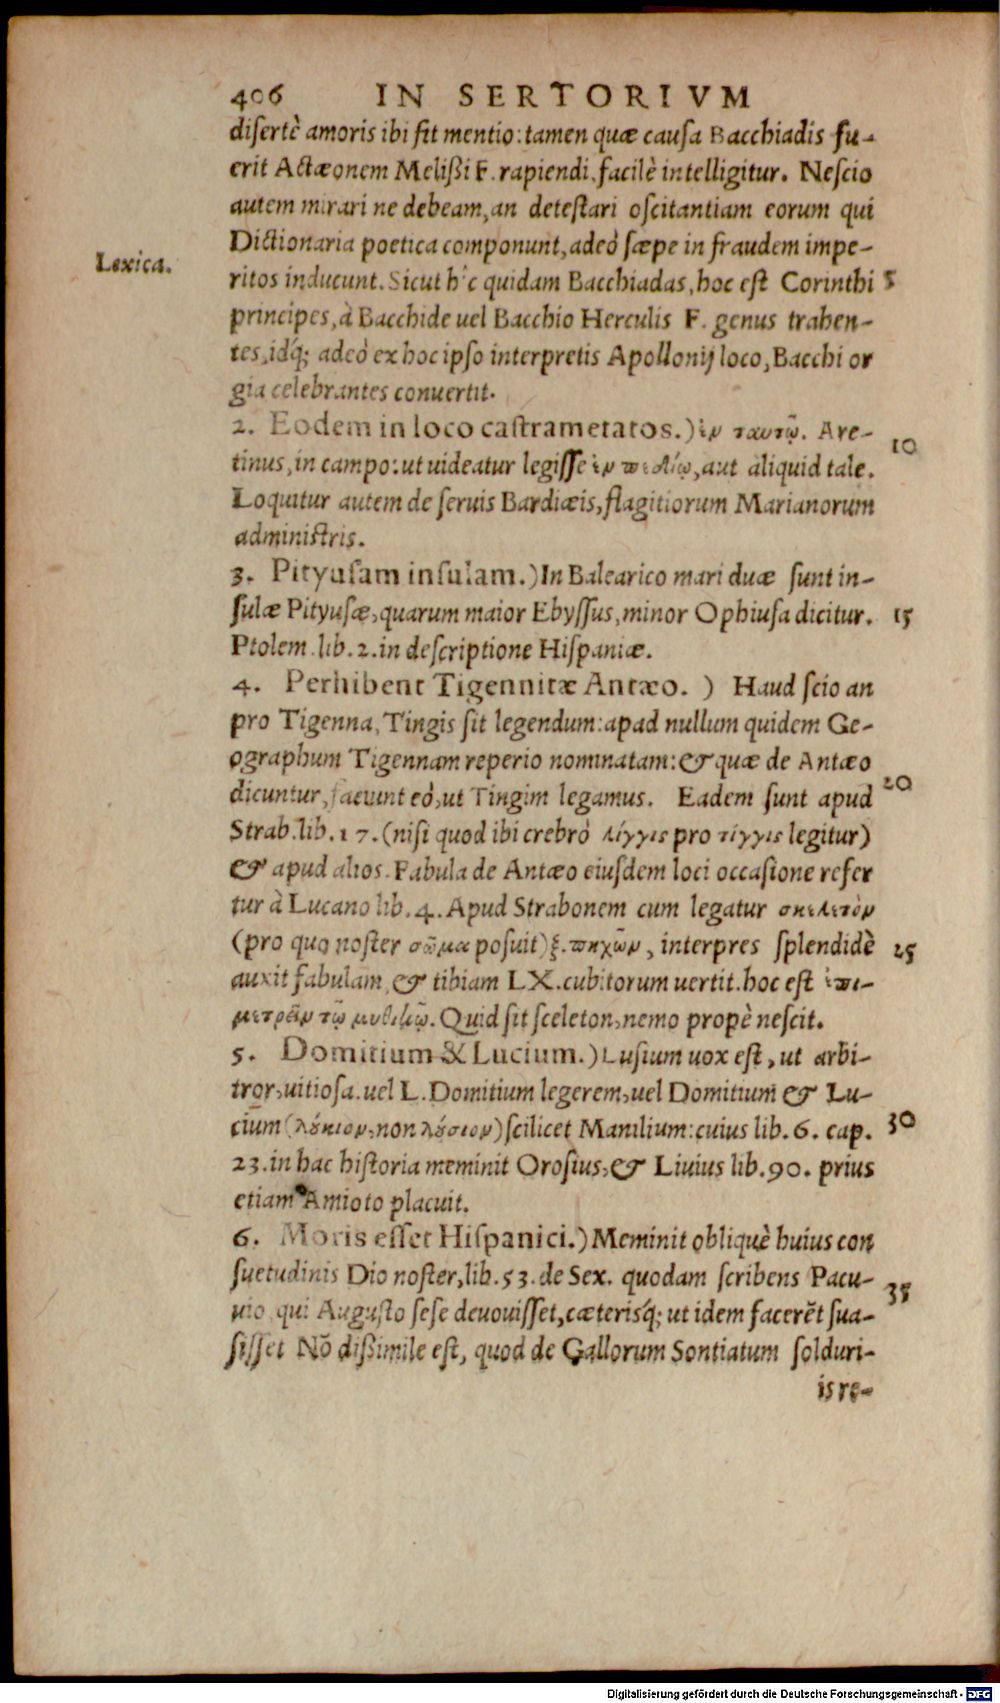 406 IN SERTORIVM
disertè amoris ibi fit mentio: tamen quæ causa Bacchiadis fu-
erit Actæonem Melißi F. rapiendi, facilè intelligitur. Nescio
autem mirari ne debeam, an detestari oscitantiam eorum qui
Dictionaria poetica componunt, adeò sæpe in fraudem impe-
Lexica.
ritos inducunt. Sicut hic quidam Bacchiadas, hoc est Corinthi 5
principes, à Bacchide uel Bacchio Herculis F. genus trahen-
tes, idq́; adeò ex hoc ipso interpretis Apollonij loco, Bacchi or
gia celebrantes conuertit.
2. Eodem in loco castrametatos.) ἐν ταυτῷ. Are-
10
tinus, in campo: ut uideatur legisse ἐν πεδίῳ, aut aliquid tale.
Loquitur autem de seruis Bardiæis, flagitiorum Marianorum
administris.
3. Pityusam insulam.) In Balearico mari duæ sunt in-
sulæ Pityusæ, quarum maior Ebyssus, minor Ophiusa dicitur. 15
Ptolem. lib. 2. in descriptione Hispaniæ.
4. Perhibent Tigennitæ Antæo. ) Haud scio an
pro Tigenna, Tingis sit legendum: apad nullum quidem Ge-
ographum Tigennam reperio nominatam: & quæ de Antæo
20
dicuntur, faciunt eò, ut Tingim legamus. Eadem sunt apud
Strab. lib. 17. (nisi quod ibi crebrò λίγγις pro τίγγις legitur)
& apud alios. Fabula de Antæo eiusdem loci occasione refer
tur à Lucano lib. 4. Apud Strabonem cum legatur σκελετὸν
(pro quo noster σῶμα posuit) ξ. πηχῶν, interpres splendidè 25
auxit fabulam, & tibiam LX. cubitorum uertit. hoc est ἐπι-
μετρεῖν τῷ μυθικῷ. Quid sit sceleton, nemo propè nescit.
5. Domitium & Lucium.) Lusium uox est, ut arbi-
tror, uitiosa. uel L. Domitium legerem, uel Domitium & Lu-
cium (λούκιον, non λούσιον) scilicet Manilium: cuius lib. 6. cap. 30
23. in hac historia meminit Orosius, & Liuius lib. 90. prius
etiam Amioto placuit.
6. Moris esset Hispanici.) Meminit obliquè huius con
suetudinis Dio noster, lib. 53. de Sex. quodam scribens Pacu-
35
uio qui Augusto sese deuouisset, cæterisq́; ut idem facerẽt sua-
sisset Nõ dißimile est, quod de Gallorum Sontiatum solduri-
is re-
Digitalisierung gefördert durch die Deutsche Forschungsgemeinschaft - DFG